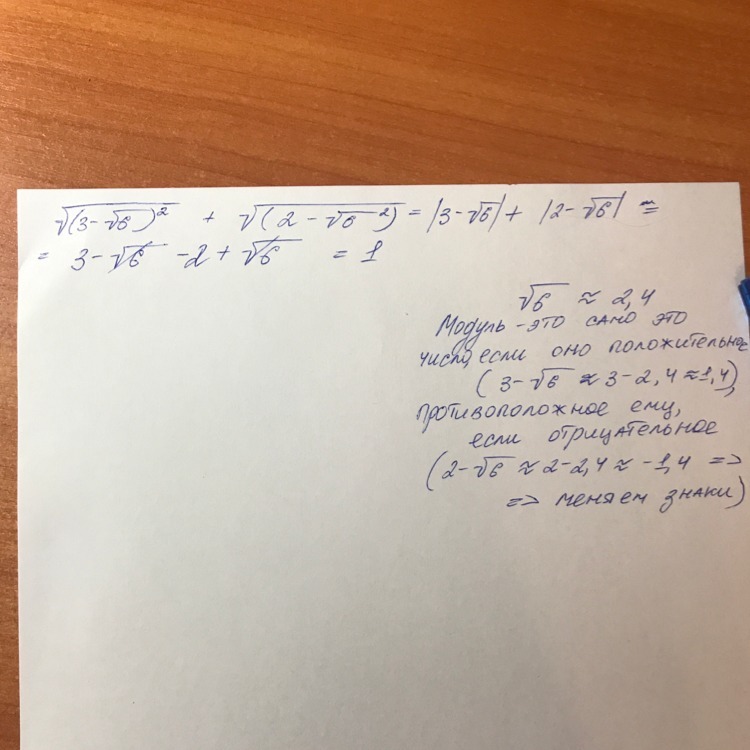 √(3-√6)² + √(2-√6²) = |3-√6| + |2-√6| =
= 3-√6 -2+√6 = 1
√6 ≈ 2,4
Модуль - это само это
число, если оно положительное
(3-√6 ≈ 3-2,4 ≈ 1,4),
противоположное ему,
если отрицательное
(2-√6 ≈ 2-2,4 ≈ -1,4 =>
=> меняем знаки)